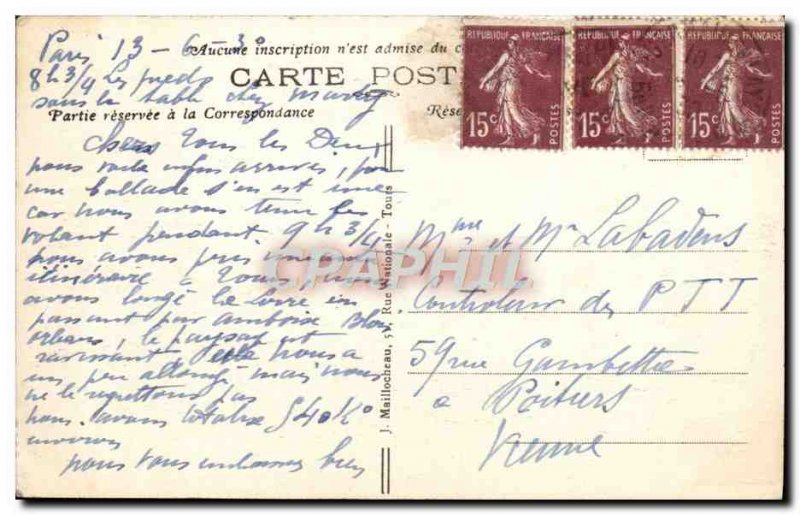 Paris 13 - 6 - 30
Aucune inscription n'est admise du c
8h 3/4 les pieds
CARTE POST
sous la table chez
Partie réservée à la Correspondance
Rése
Chers Tous les Deux
nous voila enfin arrivés,
une ballade s'en est une
car nous avons tenu le
volant pendant 9h 3/4
nous avons pris
itinéraire à Tours,
avons longé la Loire en
passant par Amboise Blois
Orléans, le paysage est
ravissant nous a
un peu allongé mais nous
ne le regrettons pas
nous avons totalisé 540 Kº
environ
nous vous embrassons bien
J. Maillocheau, 51, Rue Nationale - Tours
REPUBLIQUE FRANÇAISE
15c
POSTES
REPUBLIQUE FRANÇAISE
15c
POSTES
REPUBLIQUE FRANÇAISE
15c
POSTES
Mme et Mr Labadens
Controleur des PTT
59 rue Gambetta
a Poitiers
Vienne
CPAPHIL